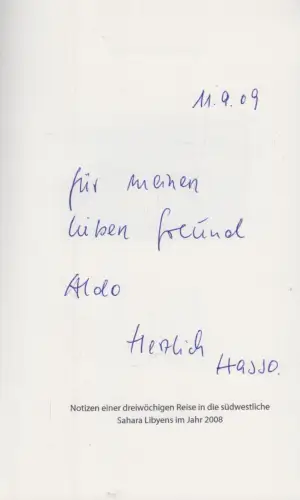 11.9.09
für meinen
lieben Freund
Aldo
Herzlich
Hasso.
Notizen einer dreiwöchigen Reise in die südwestliche
Sahara Libyens im Jahr 2008